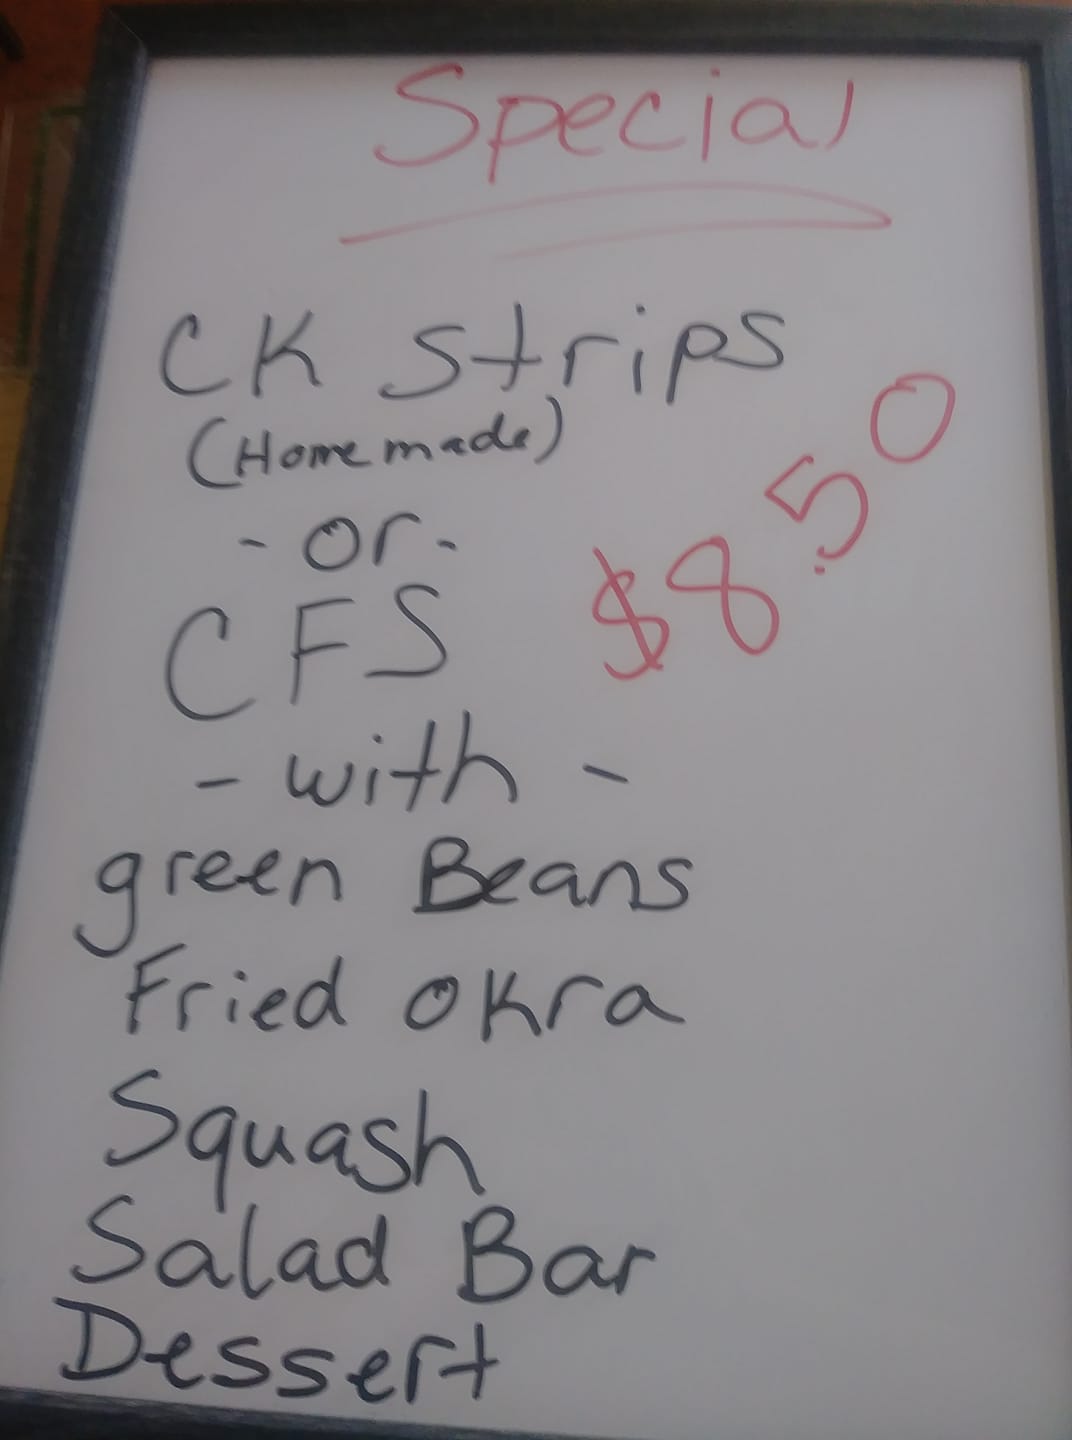 Special
CK Strips
(Homemade)
-or-
CFS
$8.50
-with-
green Beans
Fried okra
Squash
Salad Bar
Dessert